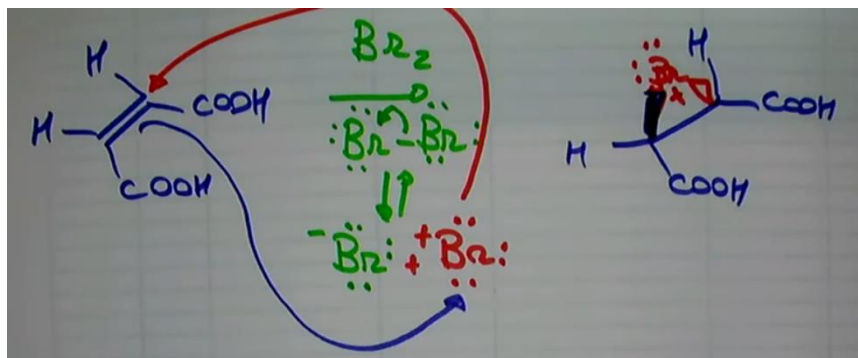 H
COOH
H
COOH
Br2
:Br-Br:
- Br: + + Br:
:Br +
H
COOH
H
COOH